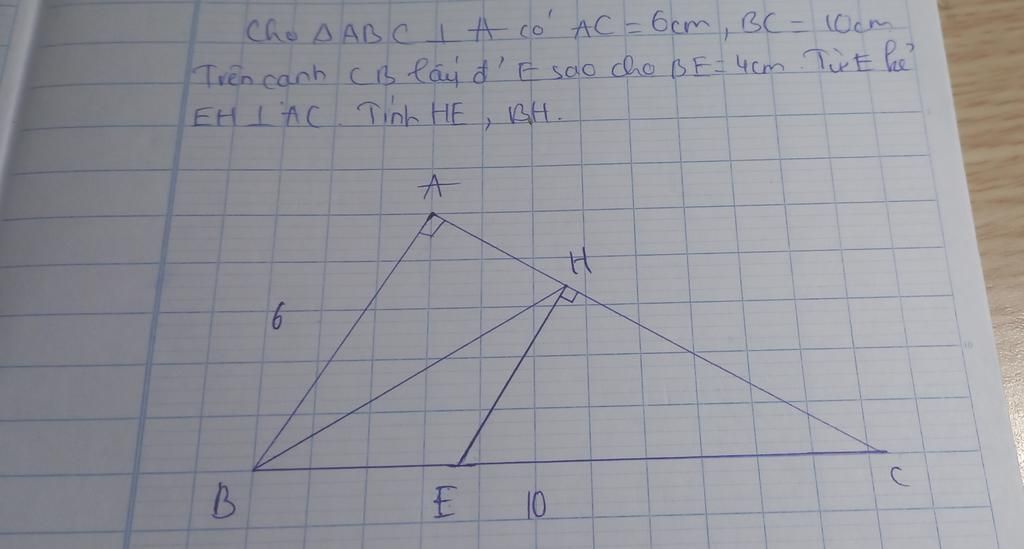 Cho △ABC ⊥ A có AC = 6cm, BC = 10cm
Trên cạnh CB lấy đ' E sao cho BE = 4cm. Từ E kẻ
EH ⊥ AC. Tính HE, BH.
A
H
6
B
E
10
C